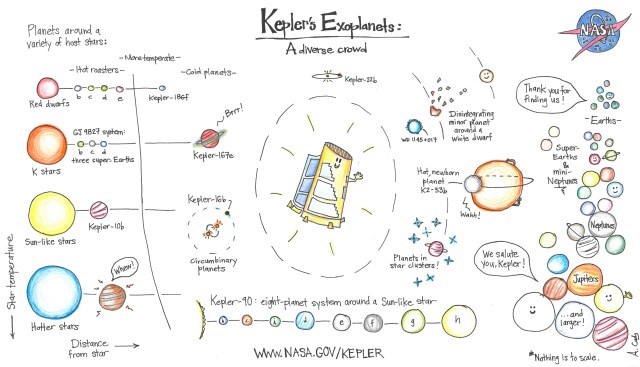 Kepler's Exoplanets:
A diverse crowd
NASA
Planets around a
variety of host stars:
-More temperate-
-Hot roasters-
-Cold planets-
Red dwarfs
b c d e
Kepler-186f
Brrr!
GJ 9827 system:
b c d
three super-Earths
K stars
Kepler-167e
Kepler-10b
Sun-like stars
Kepler-16b
Circumbinary
planets
Whew!
Hotter stars
Star temperature
Distance
from star
Kepler-37b
Disintegrating
minor planet
around a
white dwarf
WD 1145+017
Hot, newborn
planet
K2-33b
Wahh!
Planets in
star clusters!
Thank you for
finding us!
-Earths-
Super-
Earths
&
mini-
Neptunes
Neptunes
We salute
you, Kepler!
Jupiters
...and
larger!
Kepler-90: eight-planet system around a Sun-like star
b c i d e f g h
WWW.NASA.GOV/KEPLER
*Nothing is to scale.